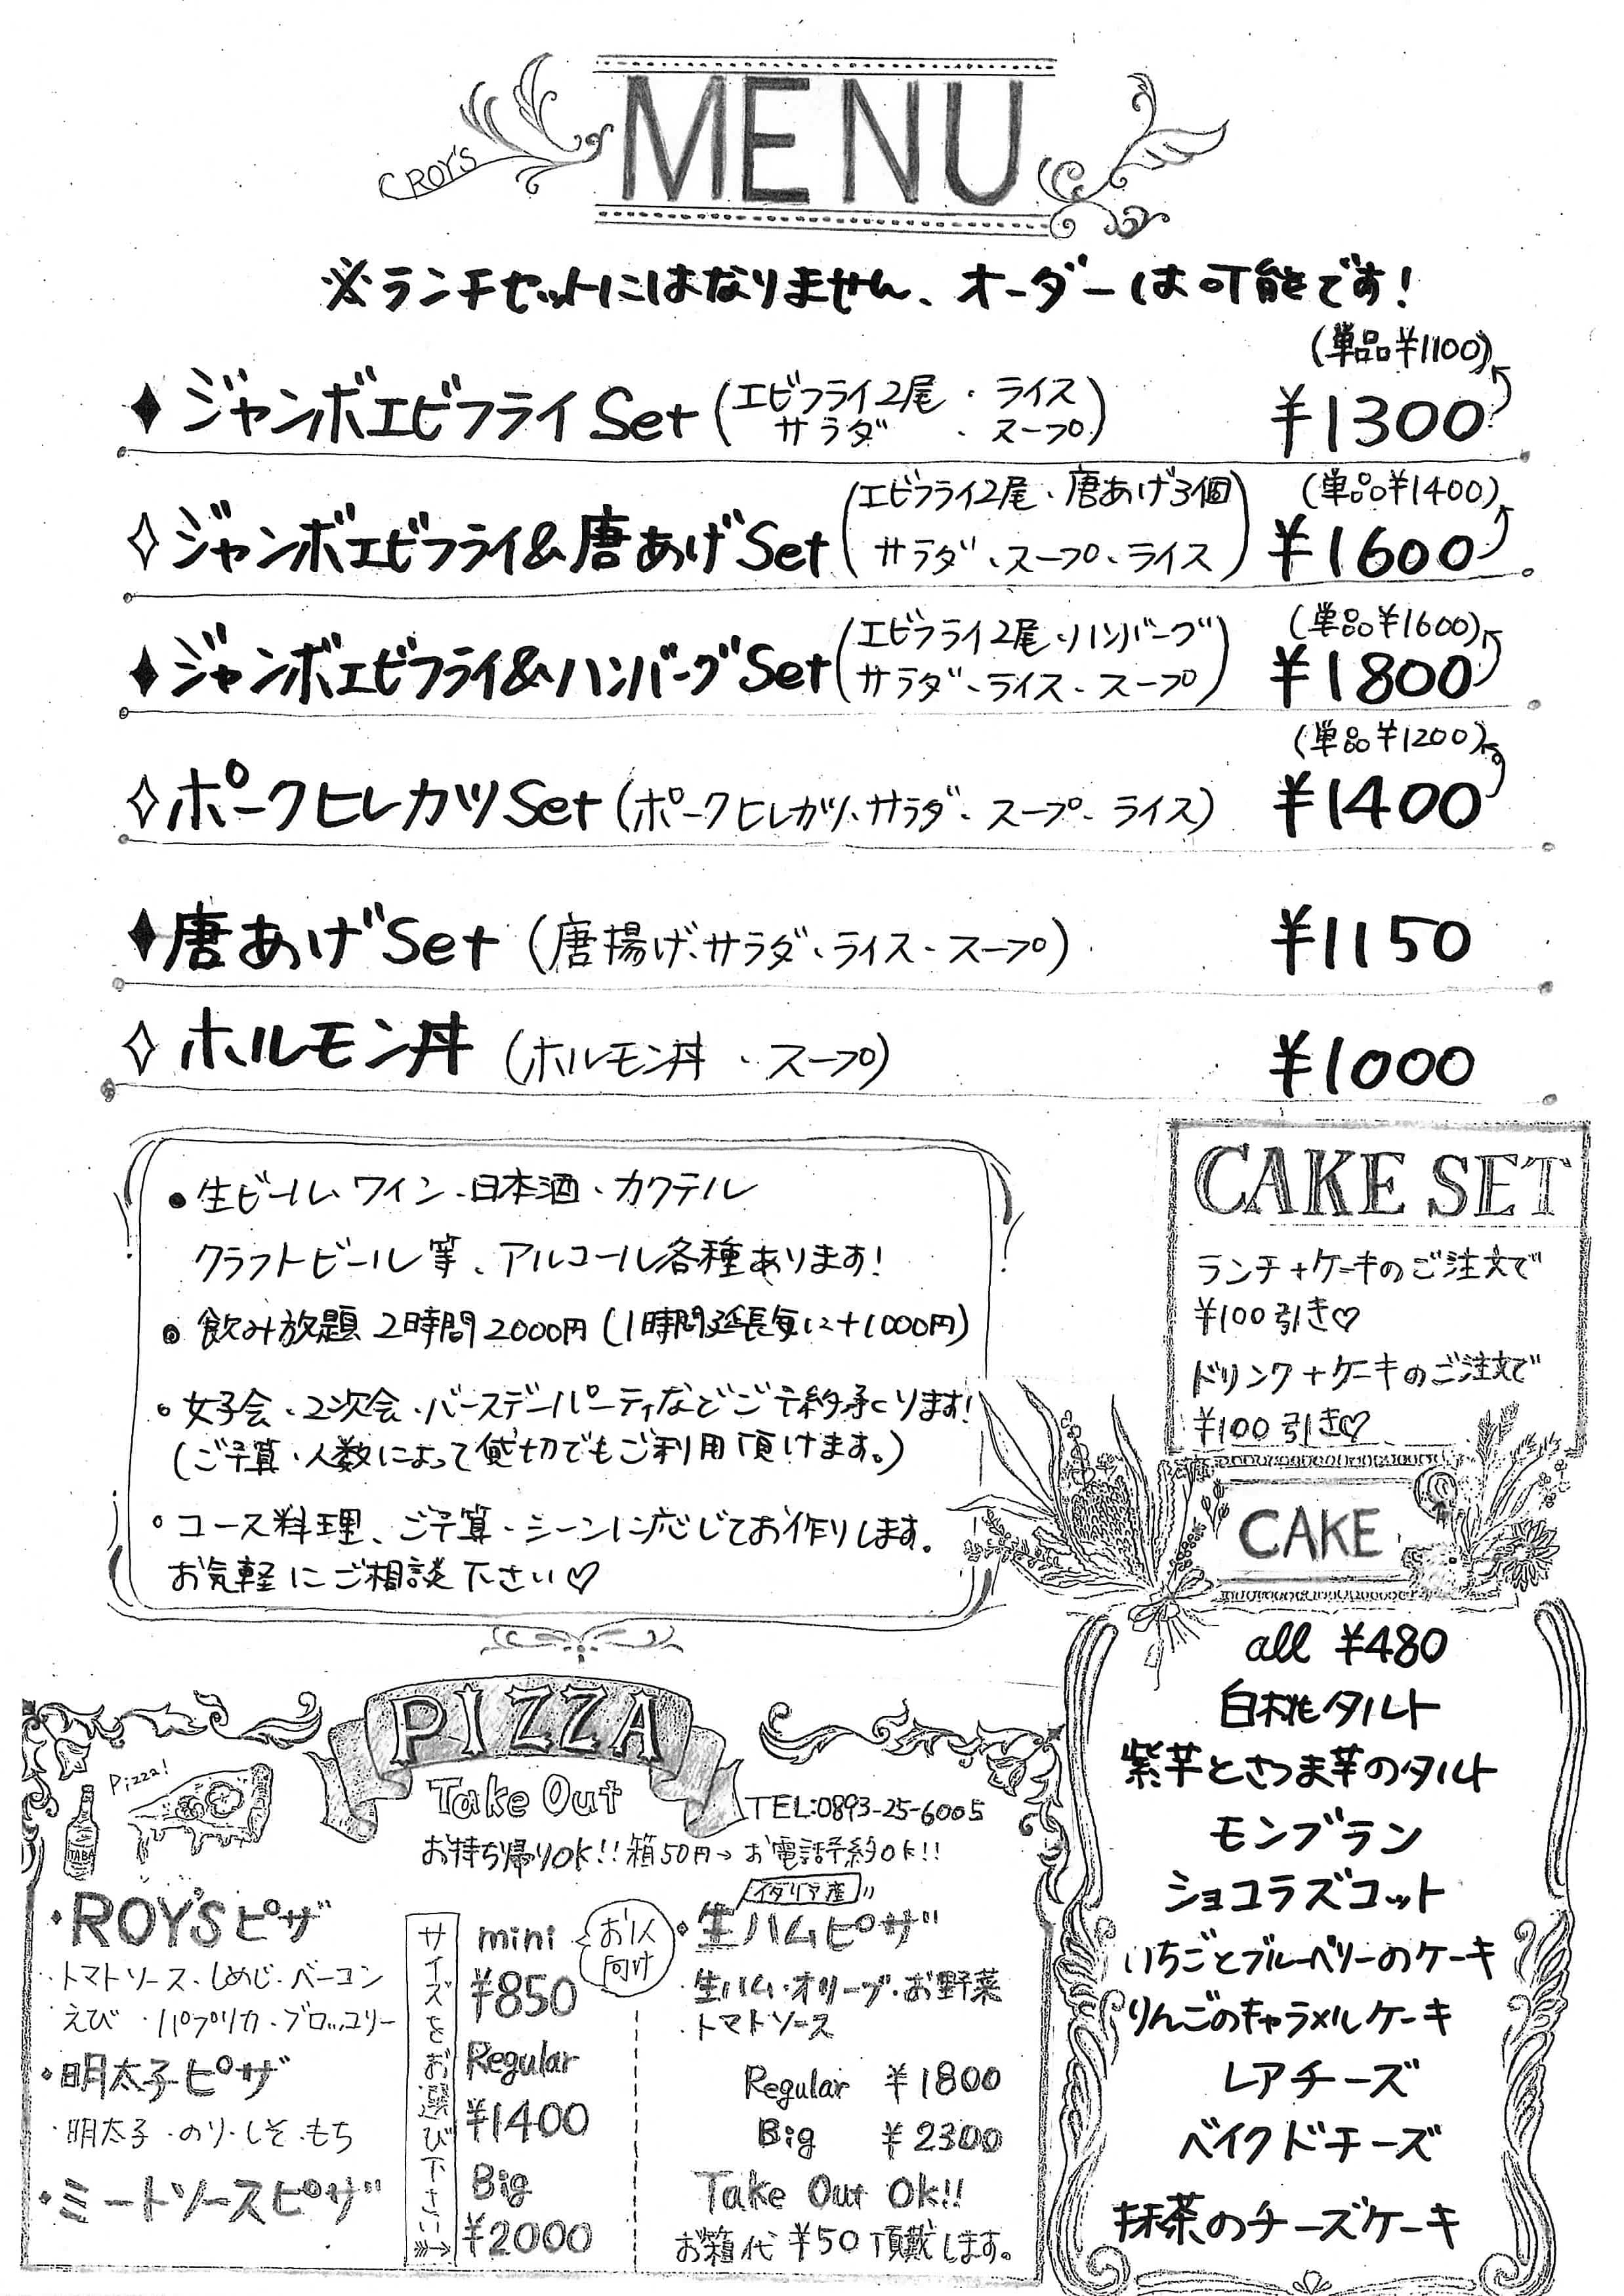 ROY'S
MENU
※ランチセットにはなりません、オーダーは可能です!
(単品¥1100)
◆ジャンボエビフライSet(エビフライ2尾・ライス ¥1300
サラダ・スープ)
(エビフライ2尾・唐あげ3個 (単品¥1400)
◇ジャンボエビフライ&唐あげSet ¥1600
サラダ・スープ・ライス)
(エビフライ2尾・ハンバーグ (単品¥1600)
◆ジャンボエビフライ&ハンバーグSet ¥1800
サラダ・ライス・スープ)
(単品¥1200)
◇ポークヒレカツSet(ポークヒレカツ、サラダ・スープ・ライス) ¥1400
◆唐あげSet(唐揚げ、サラダ・ライス・スープ) ¥1150
◇ホルモン丼(ホルモン丼・スープ) ¥1000
●生ビール、ワイン・日本酒・カクテル
クラフトビール等、アルコール各種あります!
●飲み放題 2時間2000円(1時間延長毎に+1000円)
○女子会・2次会・バースデーパーティなどご予約承ります!
(ご予算・人数によって貸切でもご利用頂けます。)
○コース料理、ご予算・シーンに応じてお作りします。
お気軽にご相談下さい♡
CAKE SET
ランチ+ケーキのご注文で
¥100引き♡
ドリンク+ケーキのご注文で
¥100引き♡
CAKE
all ¥480
白桃タルト
紫芋とさつま芋のタルト
モンブラン
ショコラズコット
いちごとブルーベリーのケーキ
りんごのキャラメルケーキ
レアチーズ
ベイクドチーズ
抹茶のチーズケーキ
PIZZA
Pizza!
TABA
Take Out
TEL:0893-25-6005
お持ち帰りOK!!箱50円→お電話予約OK!!
・ROY'Sピザ
・トマトソース・しめじ・ベーコン
えび・パプリカ・ブロッコリー
・明太子ピザ
・明太子・のり・しそ・もち
・ミートソースピザ
サイズをお選び下さい→
mini
お1人
向け
¥850
Regular
¥1400
Big
¥2000
イタリア産
・生ハムピザ
・生ハム・オリーブ・お野菜
・トマトソース
Regular ¥1800
Big ¥2300
Take Out Ok!!
お箱代 ¥50頂戴します。